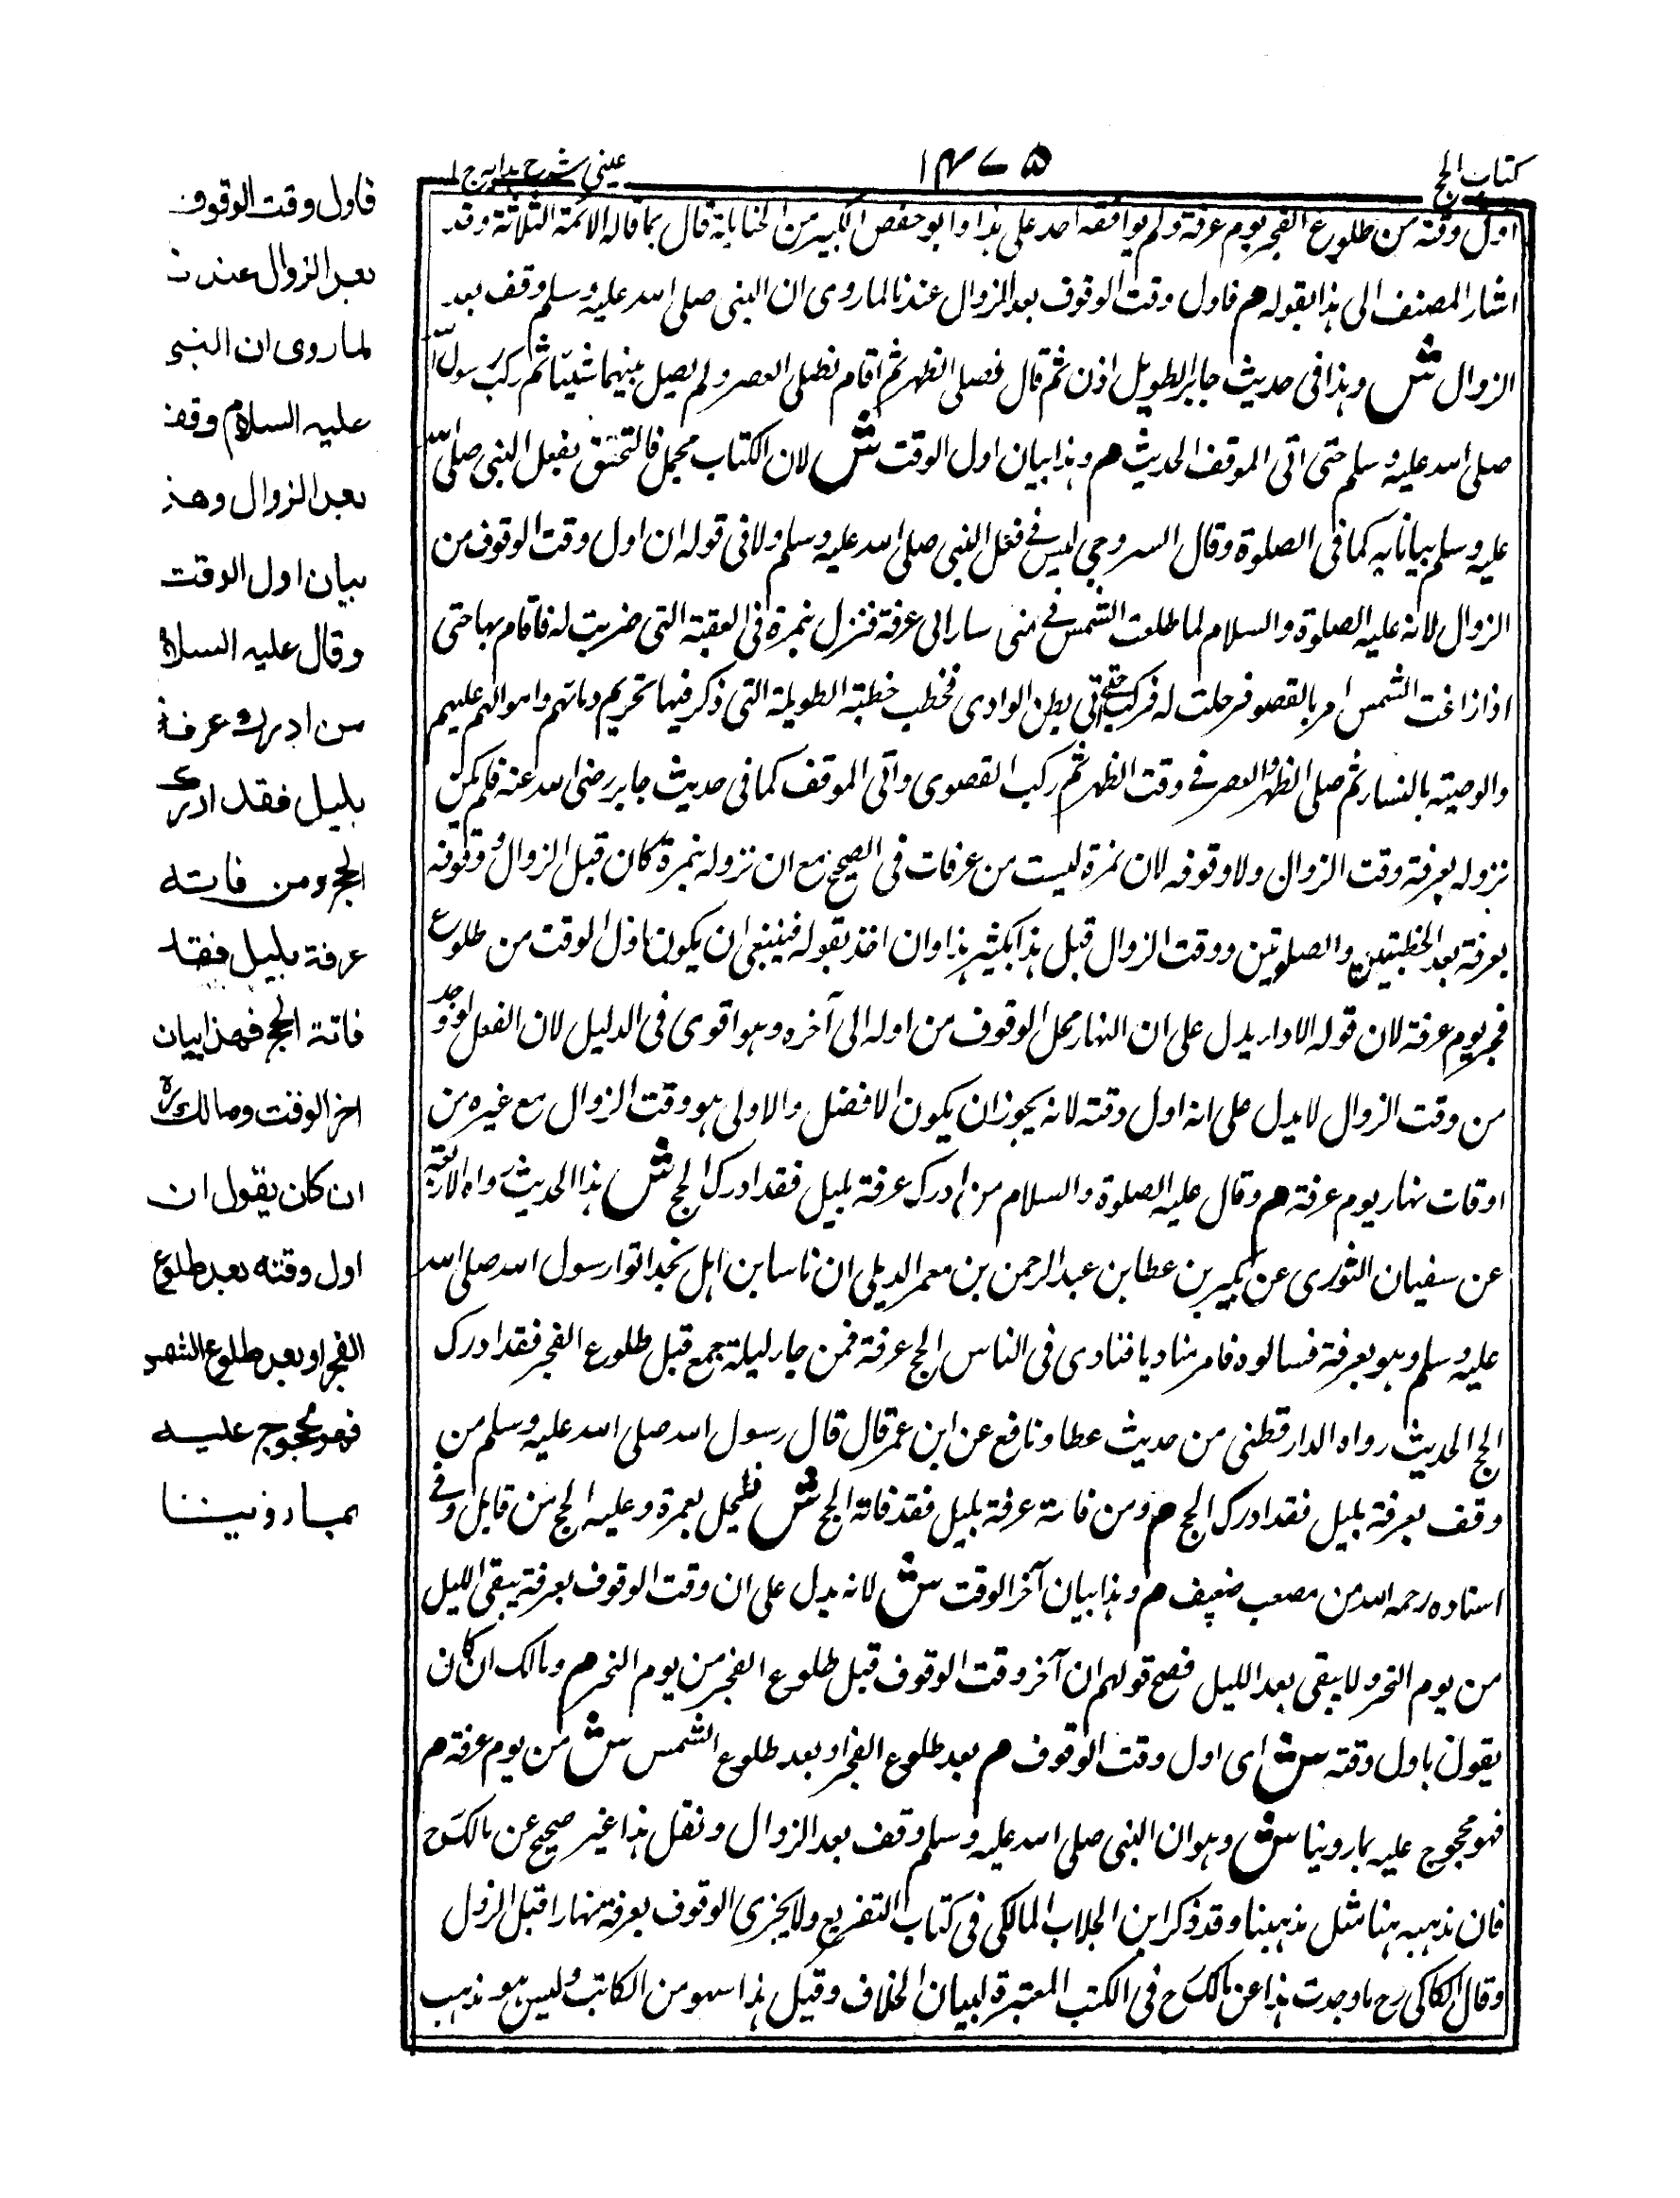 كتاب الحج
١٤٧٥
عينى شرح هدايه ج ١
اول وقته من طلوع الفجر يوم عرفة ولم يوافقه احد على هذا وابو حفص الكبير من الحنابلة قال بما قاله الائمة الثلاثة وقد
اشار المصنف الى هذا بقوله م فاول وقت الوقوف بعد الزوال عندنا لما روى ان النبى صلى الله عليه وسلم وقف بعد
الزوال ش وهذا فى حديث جابر الطويل اذن ثم قال فصلى الظهر ثم اقام فصلى العصر ولم يصل بينهما شيئا ثم ركب رسول الله
صلى الله عليه وسلم حتى اتى الموقف الحديث م وهذا بيان اول الوقت ش لان الكتاب مجمل فالتحق بفعل النبى صلى الله
عليه وسلم بيانا به كما فى الصلوة وقال السروجى ليس فى فعل النبى صلى الله عليه وسلم ولا فى قوله ان اول وقت الوقوف من
الزوال لانه عليه الصلوة والسلام لما طلعت الشمس فى منى سار الى عرفة فنزل بنمرة فى القبة التى ضربت له فاقام بها حتى
اذا زاغت الشمس امر بالقصو فرحلت له فركب حتى اتى بطن الوادى فخطب خطبة الطويلة التى ذكر فيها تحريم دمائهم واموالهم عليهم
والوصية بالنساء ثم صلى الظهر والعصر فى وقت الظهر ثم ركب القصوى واتى الموقف كما فى حديث جابر رضى الله عنه فلم يكن
نزوله بعرفة وقت الزوال ولا وقوفه لان نمرة ليست من عرفات فى الصحيح مع ان نزوله بنمرة كان قبل الزوال ووقوفه
بعرفة بعد الخطبتين والصلوتين ووقت الزوال قبل هذا بكثير هذا وان اخذ بقوله فينبغى ان يكون اول الوقت من طلوع
فجر يوم عرفة لان قوله الا دار يدل على ان النهار محل الوقوف من اوله الى آخره وهو اقوى فى الدليل لان الفعل لو وجد
من وقت الزوال لا يدل على انه اول وقته لانه يجوز ان يكون الافضل والاولى هو وقت الزوال مع غيره من
اوقات نهار يوم عرفة م وقال عليه الصلوة والسلام من ادرك عرفة بليل فقد ادرك الحج ش هذا الحديث رواه الاربعة
عن سفيان الثورى عن بكير بن عطا بن عبد الرحمن بن معمر الديلى ان ناسا من اهل نجد اتوا رسول الله صلى الله
عليه وسلم وهو بعرفة فسالوه فامر مناديا فنادى فى الناس الحج عرفة فمن جاء ليلة جمع قبل طلوع الفجر فقد ادرك
الحج الحديث رواه الدارقطنى من حديث عطا ونافع عن ابن عمر قال قال رسول الله صلى الله عليه وسلم من
وقف بعرفة بليل فقد ادرك الحج م ومن فاتته عرفة بليل فقد فاته الحج ش فليحل بعمرة وعليه الحج من قابل وفى
اسناده رحمه الله بن مصعب ضعيف م وهذا بيان آخر الوقت ش لانه يدل على ان وقت الوقوف بعرفة يبقى الليل
من يوم النحر ولا يبقى بعد الليل فصح قولهم ان آخر وقت الوقوف قبل طلوع الفجر من يوم النحر م ومالك ان كان
يقول باول وقته ش اى اول وقت الوقوف م بعد طلوع الفجر او بعد طلوع الشمس ش من يوم عرفة م
فهو محجوج عليه بما روينا ش وهو ان النبى صلى الله عليه وسلم وقف بعد الزوال ونقل هذا غير صحيح عن مالك رح
فان مذهبه هنا مثل مذهبنا وقد ذكر ابن الجلاب المالكى فى كتاب التفريع ولا يجزى الوقوف بعرفة نهارا قبل الزوال
وقال الكاكى رح ما وجدت هذا عن مالك رح فى الكتب المعتبرة لبيان الخلاف وقيل هذا سهو من الكاتب وليس هو مذهب
فاول وقت الوقوف
بعد الزوال عندنا
لما روى ان النبى
عليه السلام وقف
بعد الزوال وهذا
بيان اول الوقت
وقال عليه السلام
من ادرك عرفة
بليل فقد ادرك
الحج ومن فاتته
عرفة بليل فقد
فاتة الحج فهذا بيان
اخر الوقت ومالك ره
ان كان يقول ان
اول وقته بعد طلوع
الفجر او بعد طلوع الشمس
فهو محجوج عليه
بما روينا